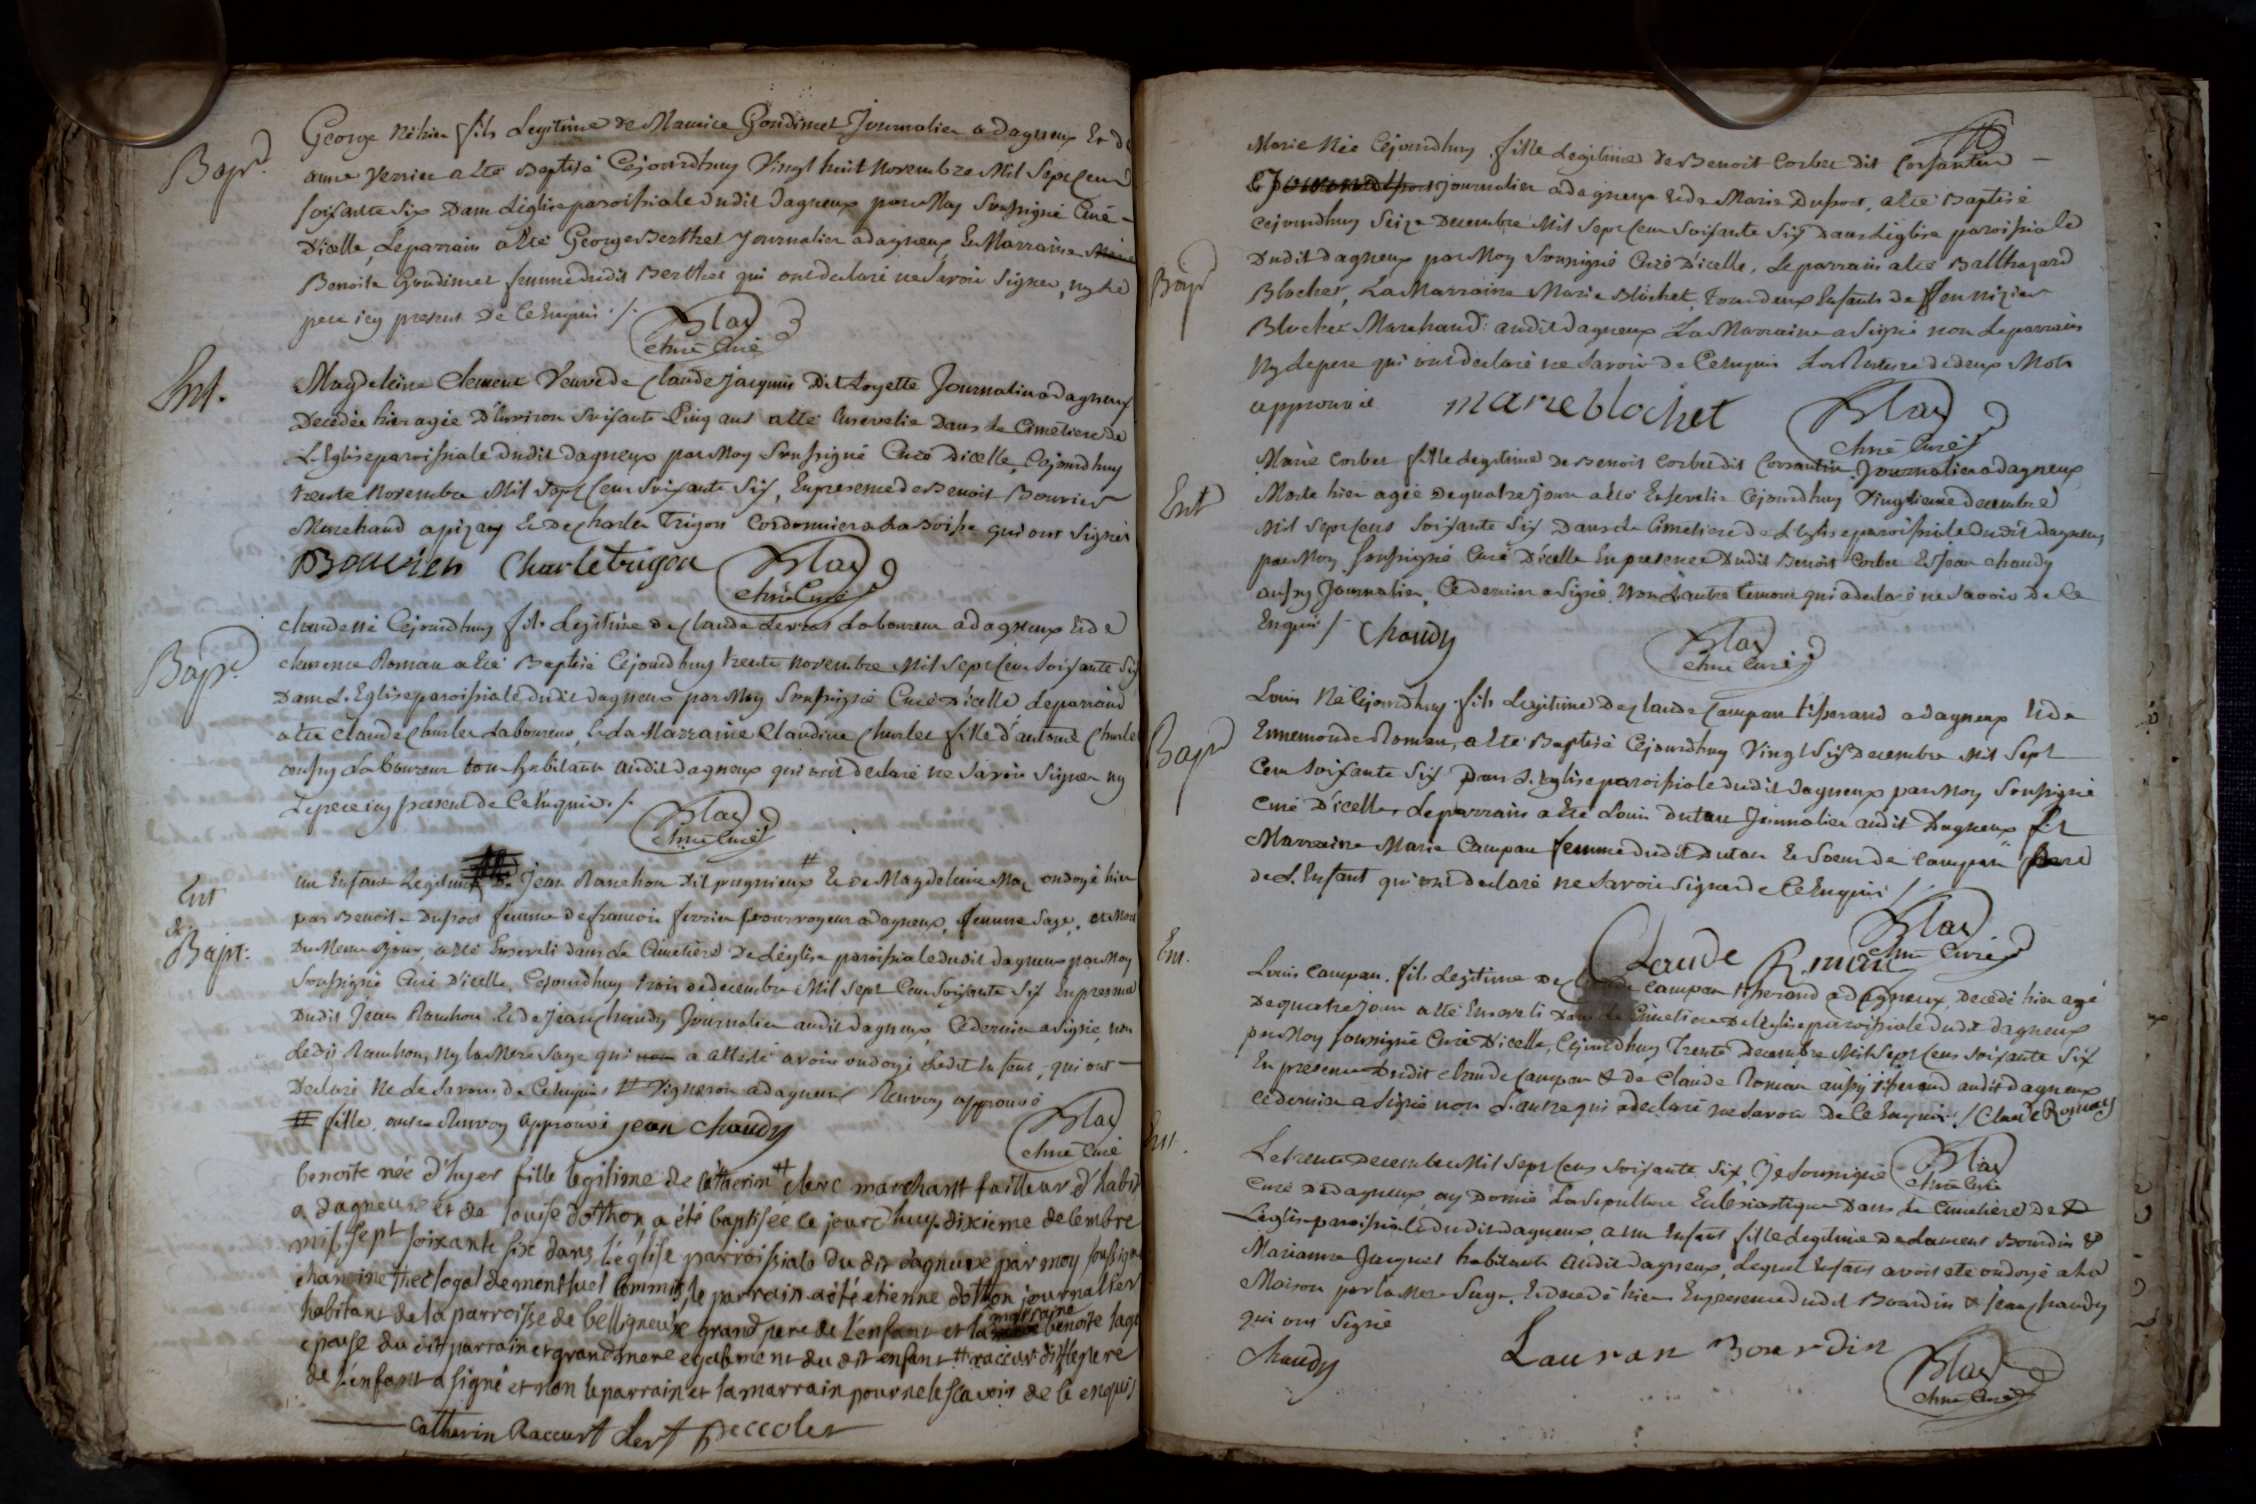 Bapt.
George né hier fils Legitime de Maurice Goudimet Journalier a dagneux Et de
anne verrier a Eté Baptisé Cejourdhuy Vingt huit Novembre Mil Sept Cent
soixante six Dans L'église paroissiale dudit dagneux par Moy Soussigné Curé
D'icelle, Le parrain a Eté George Berthet Journalier a dagneux Et Marraine
Benoite Goudimet femme dudit Berthet qui ont declaré ne Savoir Signer, ny Le
pere icy present De Ce Enquis ./.
Blad
chne Curé
Ent.
Magdeleine Clement Veuve de Claude Jacquin Dit Loyette Journalier a Dagneux
Decedée hier agée D'Environ Soixante Cinq ans a Eté Ensevelie Dans Le Cimetiere de
L'Eglise paroissiale dudit dagneux par Moy Soussigné Curé D'icelle, Cejourdhuy
trente Novembre Mil Sept Cent Soixante Six, En presence de Benoit Bouvier
Marchand a pizay Et De Charles Trigon Cordonnier a La Boisse qui ont Signés
Bouvier Charle trigon Blad
chne Curé
Bapt.
Claude né Cejourdhuy fils Legitime de Claude Laboureur a dagneux Et de
Clemence Roman a Eté Baptisé Cejourdhuy trente Novembre Mil Sept Cent Soixante Six
Dans L'Eglise paroissiale dudit dagneux par Moy Soussigné Curé D'icelle, Le parrain
a Eté Claude Charles Laboureur, Et La Marraine Claudine Charles fille d'antoine Charles
aussy Laboureur tous habitants audit dagneux qui ont declaré ne Savoir Signer ny
Le pere icy present de Ce Enquis ./.
Blad
chne Curé
Ent
&
Bapt:
Un Enfant Legitime # De Jean Ranchon Dit pugnieux # Et de Magdeleine ondoyé hier
par Benoite Duport femme de francois ferrier pourvoyeur a dagneux, femme Sage, et Mort
Du Meme Jour, a Eté Enseveli dans Le Cimetiere De L'église paroissiale dudit dagneux par Moy
Soussigné Curé D'icelle, Cejourdhuy trois de decembre Mil Sept Cent Soixante Six En presence
Dudit Jean Ranchon Et de Jean Chaudy Journalier audit dagneux, Ce dernier a Signé, non
Ledit Ranchon, ny La Mere Sage qui a attesté avoir ondoyé Ledit Enfant, qui ont
Declaré Ne Le Savoir de Ce Enquis # Vigneron a dagneux Renvoy approuvé
# fille. autre Renvoy approuvé jean chaudy
Blad
chne Curé
benoite née d'hyer fille legitime de Catherin # clerc marchant tailleur d'habit
a dagneux et de louise dothon, a été baptisée ce jourd'huy dixieme decembre
mil sept soixante six dans l'église parroissiale du dit dagneux par moy soussigné
chanoine theologal de montluel commis, le parrain a été etienne dothon journallier
habitant de la parroisse de belligneux grand pere de l'enfant et la marraine benoite
epouse du dit parrain et grand mere egalement du dit enfant # raccurt dit le pere
de l'enfant a signé et non le parrain et la marrain pour ne le scavoir de ce enquis
Catherin Raccurt clert peccolet
Bapt
Marie Née Cejourdhuy fille Legitime de Benoit Corbet dit Corsantin
journalier a dagneux Et de Marie Duport, a Eté Baptisé
Cejourdhuy Seize Decembre Mil Sept Cent Soixante Six Dans L'église paroissiale
Dudit Dagneux par Moy Soussigné Curé D'icelle, Le parrain a Eté Balthazard
Blochet, La Marraine Marie Blochet, Tous deux Enfants de feu nizier
Blochet Marchand audit dagneux La Marraine a Signé non Le parrain
Ny Le pere qui ont declaré ne Savoir de Ce Enquis La Rature de deux Mots
approuvée marie blochet Blad
chne Curé
Ent
Marie Corbet fille Legitime de Benoit Corbet dit Corsantin Journalier a dagneux
Morte hier agée De quatre jours a Eté Ensevelie Cejourdhuy Vingtieme decembre
Mil Sept Cens Soixante Six Dans Le Cimetiere De L'Eglise paroissiale Dudit dagneux
par Moy Soussigné Curé D'icelle En presence Dudit Benoit Corbet Et Jean chaudy
aussy Journalier, Ce dernier a Signé, Non L'autre temoin qui a declaré ne Savoir de Ce
Enquis /. Chaudy Blad
chne Curé
Bapt
Louis Né Cejourdhuy fils Legitime De Claude Campan tisserand a dagneux Et de
Ennemonde Roman, a Eté Baptisé Cejourdhuy Vingt Six Decembre Mil Sept
Cent soixante Six Dans L'Eglise paroissiale dudit dagneux par Moy Soussigné
Curé D'icelle, Le parrain a Eté Louis Dutau Journalier audit Dagneux Et
Marraine Marie Campan femme dudit Dutau Et Soeur de Campan pere
de L'Enfant qui ont declaré ne Savoir Signer de Ce Enquis /.
Blad
chne Curé
Claude Roman
Ent.
Louis Campan, fils Legitime De Claude Campan tisserand a dagneux, Decedé hier agé
De quatre jours a Eté Enseveli Dans Le Cimetiere De L'église paroissiale dudit dagneux
par Moy soussigné Curé D'icelle, Cejourdhuy Trente Decembre Mil Sept Cens soixante Six
En presence Dudit Claude Campan & de Claude Roman aussy tisserand audit dagneux
Ce dernier a Signé non L'autre qui a declaré ne Savoir de Ce Enquis ./ Claude Roman
Ent.
Le trente Decembre Mil Sept Cens soixante Six, Je Soussigné Blad
chne Curé
Curé De dagneux, ay Donné La Sepulture Ecclesiastique Dans Le Cimetiere De
L'église paroissiale dudit dagneux, a un Enfant fille Legitime De Laurent Bourdin &
Marianne Jacquet habitants audit dagneux, Lequel Enfant avoit eté ondoyé a La
Maison par La Mere Sage, Et decedé hier En presence dudit Bourdin & Jean Chaudy
qui ont Signé
Chaudy Lauran Bourdin Blad
chne Curé